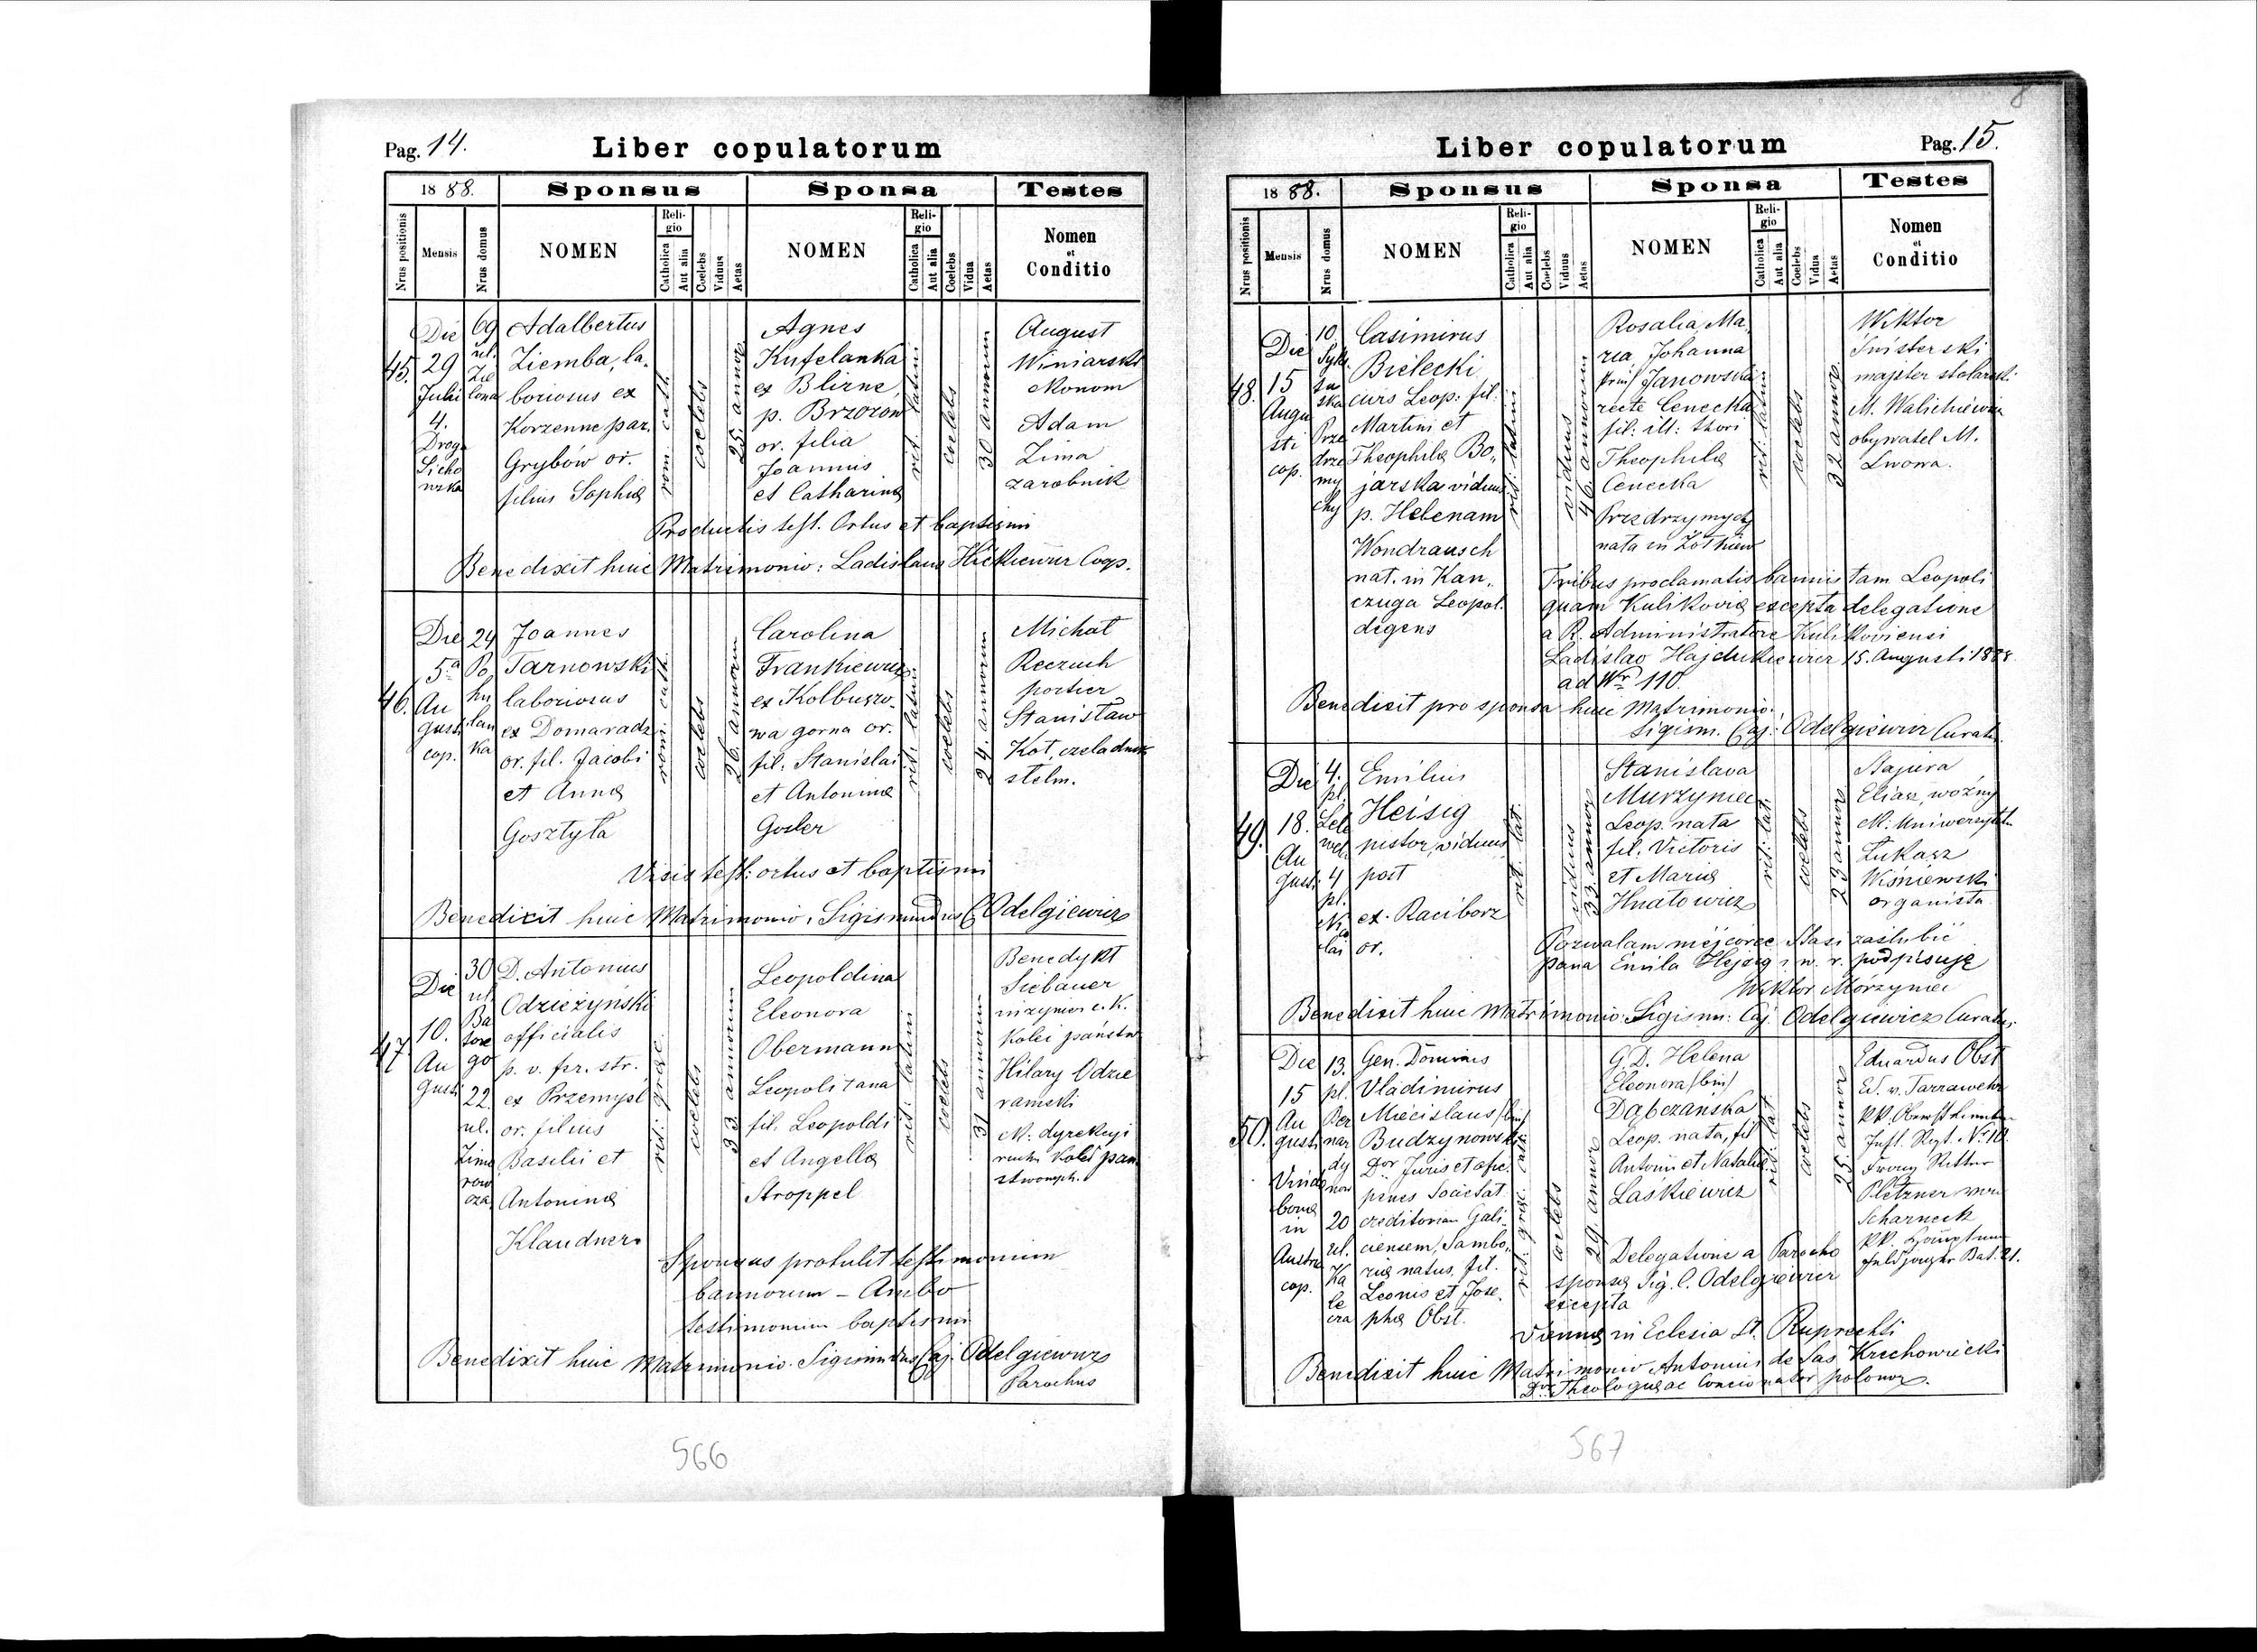 Pag. 14.
Liber copulatorum
1888.
Sponsus
Sponsa
Testes
Nrus positionis
Mensis
Nrus domus
NOMEN
Religio
Catholica
Aut alia
Coelebs
Viduus
Aetas
NOMEN
Religio
Catholica
Aut alia
Coelebs
Vidua
Aetas
Nomen
et
Conditio
45.
Die
29
Julii
4.
Droga
Sicho
wska
69
ul.
Zie
lona
Adalbertus
Ziemba, la-
boriosus ex
Korzenne par.
Grybów or.
filius Sophiæ
rom. cath.
coelebs
25. annor.
Agnes
Kufelanka
ex Blizne
p. Brzozów
or. filia
Joannis
et Catharinæ
rit. latini
coelebs
30 annorum
August
Winiarski
ekonom
Adam
Zima
zarobnik
Productis test. Ortus et baptismi
Benedixit huic Matrimonio: Ladislaus Coop.
46.
Die
5ª
Au
gusti
cop.
24
Po
hu
lan
ka
Joannes
Tarnowski
laboriosus
ex Domaradz
or. fil. Jacobi
et Annæ
Gosztyła
rom. cath.
coelebs
26. annorum
Carolina
Frankiewicz
ex Kolbuszo-
wa gorna or.
fil: Stanislai
et Antoninæ
Goder
rit. latini
coelebs
24. annorum
Michał
Reczuch
portier
Stanisław
Kot, czeladnik
stelm.
Visis test: ortus et baptismi
Benedixit huic Matrimonio: Sigismundus C. Odelgiewicz
47.
Die
10.
Au
gusti
30
ul.
Ba
tore
go
22.
ul.
Zimo
row
cza
D. Antonius
Odzieżyński
officialis
p. v. fer. str.
ex Przemyśl
or. filius
Basilii et
Antoninæ
Klaudner
rit: græc.
coelebs
33 annorum
Leopoldina
Eleonora
Obermann
Leopolitana
fil. Leopoldi
et Angellæ
Stroppel
rit: latini
coelebs
31 annorum
Benedykt
Siebauer
inżynier c. K.
Kolei państw.
Hilary Odzie
ck: dyrekcyi
ruchu Kolei pań
Sponsus protulit testimonium
bannorum - Ambo
testimonium baptismi
Benedixit huic Matrimonio. Sigismundus Caj. Odelgiewicz
Parochus
566
8
Liber copulatorum
Pag. 15.
1888.
Sponsus
Sponsa
Testes
Nrus positionis
Mensis
Nrus domus
NOMEN
Religio
Catholica
Aut alia
Coelebs
Viduus
Aetas
NOMEN
Religio
Catholica
Aut alia
Coelebs
Vidua
Aetas
Nomen
et
Conditio
48.
Die
15
Augu
sti
cop.
10.
Sykt
tu
ska
Prze
drze
my
chy
Casimirus
Bielecki
curs Leop: fil:
Martini et
Theophilæ Bo-
jarska viduus
p. Helenam
Wondrausch
nat. in Kan-
czuga Leopol.
degens
rit: latini
viduus
46. annorum
Rosalia, Ma-
ria, Johanna
Janowska
recte Cenecka
fil: ill: thori
Theophilæ
Cenecka
Przedrzymychy
nata in Żółkiew
rit: latini
coelebs
32 annor.
Wiktor
Świsterski
majster stolarski
M. Walichiewicz
obywatel M.
Lwowa.
Tribus proclamatis bannis tam Leopoli
quam Kulikoviæ excepta delegatione
a R. Administratore Kulikoviensi
Ladislao Hajdukiewicz 15. Augusti 1888
ad Nr 110.
Benedixit pro sponsa huic Matrimonio.
Sigism. Caj: Odelgiewicz Curatus
49.
Die
18.
Au
gusti
4.
pl.
Lele
wela
4
pl.
lai
Emilius
Heisig
pistor, viduus
post
ex. Raciborz
or.
rit. lat.
viduus
33 annor.
Stanislava
Murzyniec
Leop. nata
fil. Victoris
et Mariæ
Hnatowicz
rit: lat:
coelebs
23 annor.
Bajura
Eliasz, woźny
ck. Uniwersytetu
Łukasz
Wiśniewski
organista
Pozwalam niejcorce Stasi zaślubić
pana Emila Hejzig i w. r. podpisuję
Wiktor Morzyniec
Benedixit huic Matrimonio: Sigism: Caj. Odelgiewicz Curatus.
50.
Die
15
Au
gusti
Vindo
bonæ
in
Austria
cop.
13.
pl.
Ber
nar
dy
now
20
ul.
Ka
le
cza
Gen. Dominus
Vladimirus
Miecislaus (bin)
Budzynowski
Dor Juris et
penes Societat.
creditoriam Gali-
ciensem, Sambo-
riæ natus, fil.
Leonis et Jose-
phæ Obst.
rit: græc. cath
coelebs
29. annor.
G. D. Helena
Eleonora (bin)
Dąbczańska
Leop. nata, fil
Antonii et Nataliæ
Laśkiewicz
rit: lat
coelebs
25. annor.
Eduardus Obst
Ed. v. Tarrawehr
KK. Oberstleuten
Inft. Regt. Nr 10.
Franz Ritter
Pletzner von
Scharneck
KK. Hauptman
Feldjäger Bat. 21.
Delegatione a Parocho
sponsæ Sig. C. Odelgiewicz
excepta
Viennæ in Eclesia St. Ruprechti
Benedixit huic Matrimonio Antonius de Sas Krechowiecki
Dor Theologiæ ac Concionator polonor.
567